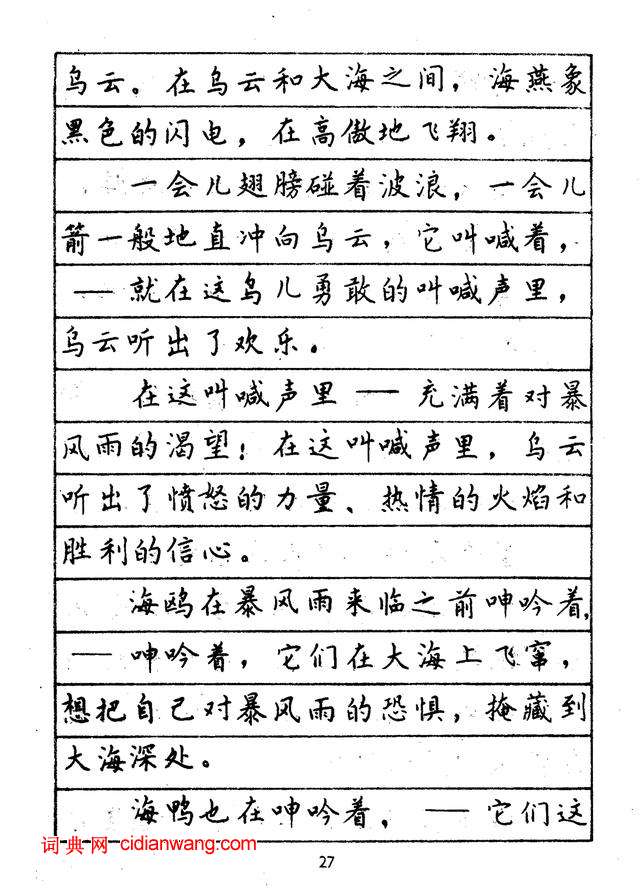 乌云。在乌云和大海之间，海燕象
黑色的闪电，在高傲地飞翔。
一会儿翅膀碰着波浪，一会儿
箭一般地直冲向乌云，它叫喊着，
— 就在这鸟儿勇敢的叫喊声里，
乌云听出了欢乐。
在这叫喊声里 — 充满着对暴
风雨的渴望！在这叫喊声里，乌云
听出了愤怒的力量、热情的火焰和
胜利的信心。
海鸥在暴风雨来临之前呻吟着，
— 呻吟着，它们在大海上飞窜，
想把自己对暴风雨的恐惧，掩藏到
大海深处。
海鸭也在呻吟着， — 它们这
词典网 cidianwang.com
27